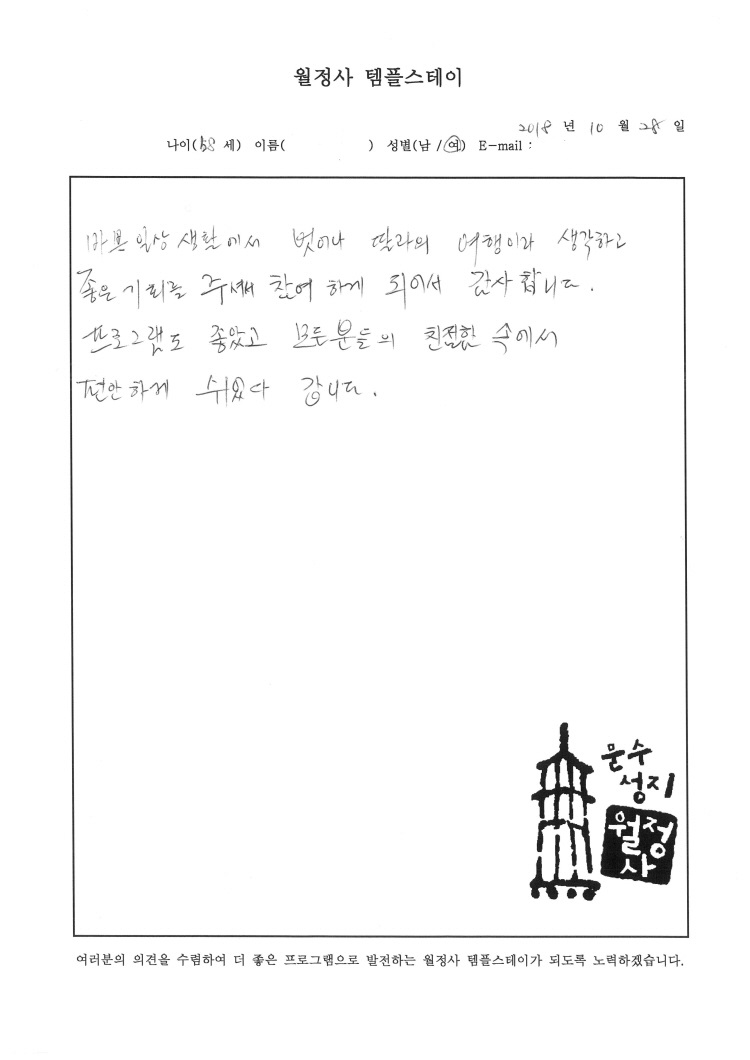 월정사 템플스테이
2018 년 10 월 28 일
나이(58 세) 이름( ) 성별(남 / 여) E-mail :
바쁜 일상 생활에서 벗어나 딸과의 여행이라 생각하고
좋은 기회를 주셔서 참여 하게 되어서 감사합니다.
프로그램도 좋았고 모든분들의 친절함 속에서
편안하게 쉬었다 갑니다.
문수
성지
월정
사
여러분의 의견을 수렴하여 더 좋은 프로그램으로 발전하는 월정사 템플스테이가 되도록 노력하겠습니다.